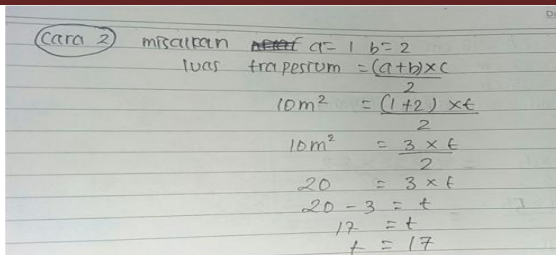 Cara 2 misalkan a = 1 b = 2
luas trapesium = (a+b)×c
2
10m² = (1+2) × t
2
10m² = 3 × t
2
20 = 3 × t
20 - 3 = t
17 = t
t = 17